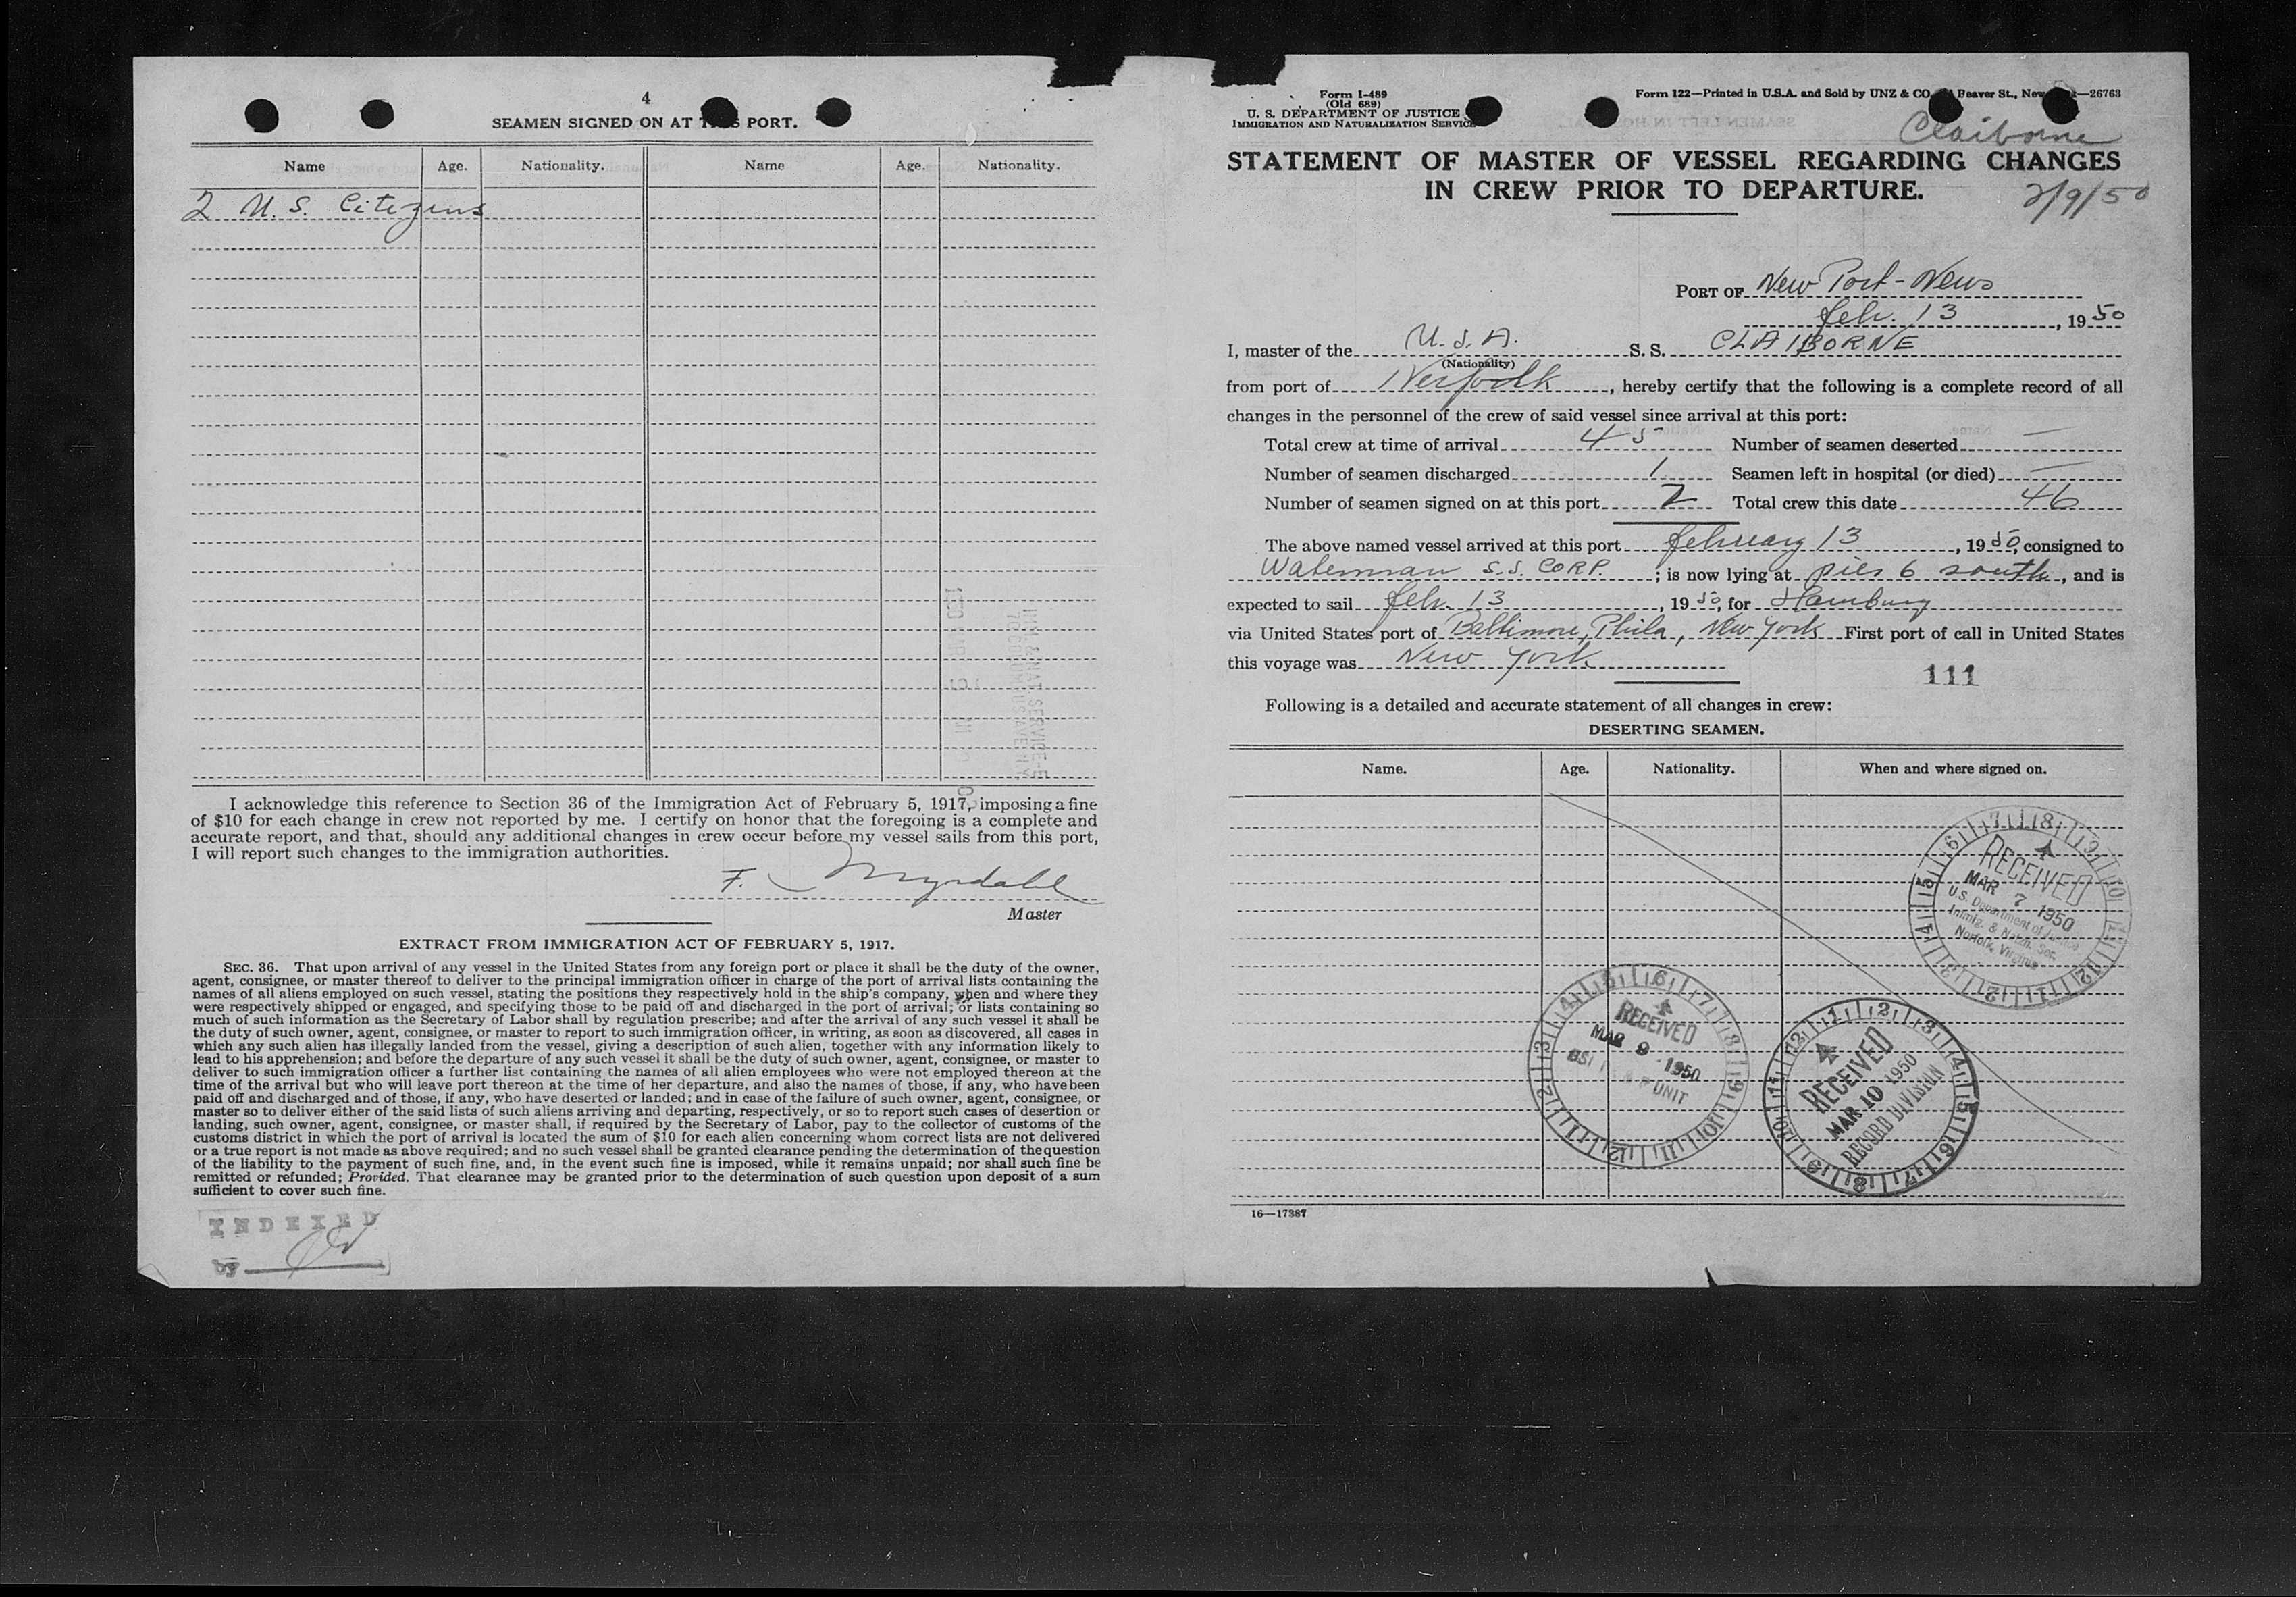 4
SEAMEN SIGNED ON AT THIS PORT.
Name Age. Nationality. Name Age. Nationality.
2 U. S. Citizens
I acknowledge this reference to Section 36 of the Immigration Act of February 5, 1917, imposing a fine
of $10 for each change in crew not reported by me. I certify on honor that the foregoing is a complete and
accurate report, and that, should any additional changes in crew occur before my vessel sails from this port,
I will report such changes to the immigration authorities.
F. Myrdahl
Master
EXTRACT FROM IMMIGRATION ACT OF FEBRUARY 5, 1917.
SEC. 36. That upon arrival of any vessel in the United States from any foreign port or place it shall be the duty of the owner,
agent, consignee, or master thereof to deliver to the principal immigration officer in charge of the port of arrival lists containing the
names of all aliens employed on such vessel, stating the positions they respectively hold in the ship's company, when and where they
were respectively shipped or engaged, and specifying those to be paid off and discharged in the port of arrival; or lists containing so
much of such information as the Secretary of Labor shall by regulation prescribe; and after the arrival of any such vessel it shall be
the duty of such owner, agent, consignee, or master to report to such immigration officer, in writing, as soon as discovered, all cases in
which any such alien has illegally landed from the vessel, giving a description of such alien, together with any information likely to
lead to his apprehension; and before the departure of any such vessel it shall be the duty of such owner, agent, consignee, or master to
deliver to such immigration officer a further list containing the names of all alien employees who were not employed thereon at the
time of the arrival but who will leave port thereon at the time of her departure, and also the names of those, if any, who have been
paid off and discharged and of those, if any, who have deserted or landed; and in case of the failure of such owner, agent, consignee, or
master so to deliver either of the said lists of such aliens arriving and departing, respectively, or so to report such cases of desertion or
landing, such owner, agent, consignee, or master shall, if required by the Secretary of Labor, pay to the collector of customs of the
customs district in which the port of arrival is located the sum of $10 for each alien concerning whom correct lists are not delivered
or a true report is not made as above required; and no such vessel shall be granted clearance pending the determination of the question
of the liability to the payment of such fine, and, in the event such fine is imposed, while it remains unpaid; nor shall such fine be
remitted or refunded; Provided, That clearance may be granted prior to the determination of such question upon deposit of a sum
sufficient to cover such fine.
INDEXED
by
Form I-489
(Old 689)
U. S. DEPARTMENT OF JUSTICE
IMMIGRATION AND NATURALIZATION SERVICE
Form 122—Printed in U.S.A. and Sold by UNZ & CO. Beaver St., New —26763
Claiborne
STATEMENT OF MASTER OF VESSEL REGARDING CHANGES
IN CREW PRIOR TO DEPARTURE.
2/9/50
PORT OF New Port-News
feb. 13, 1950
I, master of the U.S.A. S. S. CLAIBORNE
(Nationality)
from port of Norfolk, hereby certify that the following is a complete record of all
changes in the personnel of the crew of said vessel since arrival at this port:
Total crew at time of arrival 45 Number of seamen deserted —
Number of seamen discharged 1 Seamen left in hospital (or died) —
Number of seamen signed on at this port 2 Total crew this date 46
The above named vessel arrived at this port february 13, 1950, consigned to
Waterman S.S. CORP.; is now lying at pier 6 south, and is
expected to sail feb. 13, 1950, for Hamburg
via United States port of Baltimore, Phila, New York First port of call in United States
this voyage was New York
111
Following is a detailed and accurate statement of all changes in crew:
DESERTING SEAMEN.
Name. Age. Nationality. When and where signed on.
RECEIVED
MAR 7 1950
U.S. Department of Justice
Immig. & Natzn. Ser.
Norfolk, Virginia
RECEIVED
MAR 9 1950
UNIT
RECEIVED
MAR 10 1950
RECORD DIVISION
16—17387